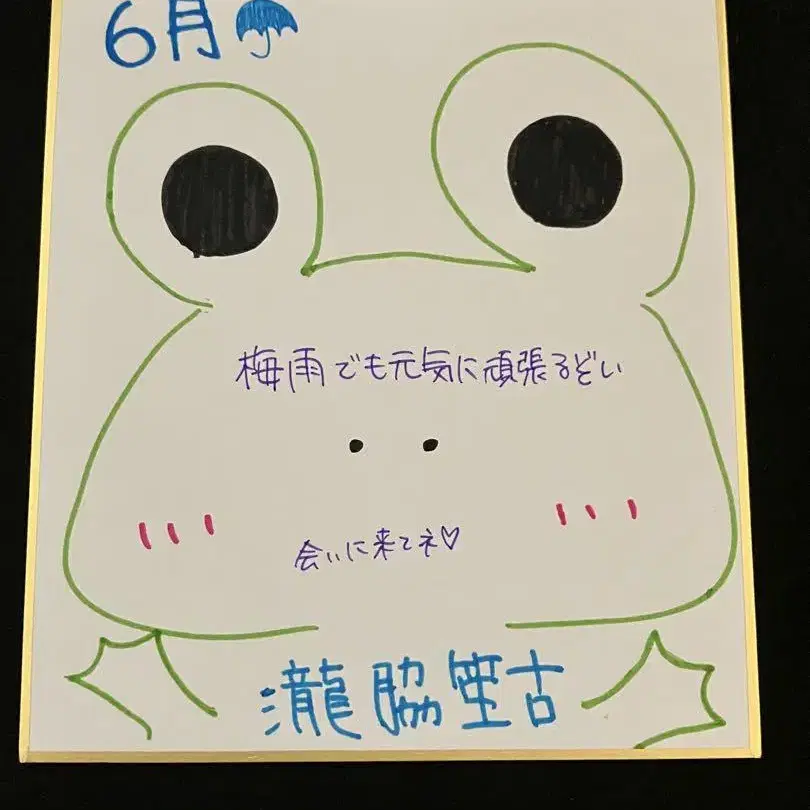 6月
梅雨でも元気に頑張るどい
会いに来てネ♡
瀧脇笙古